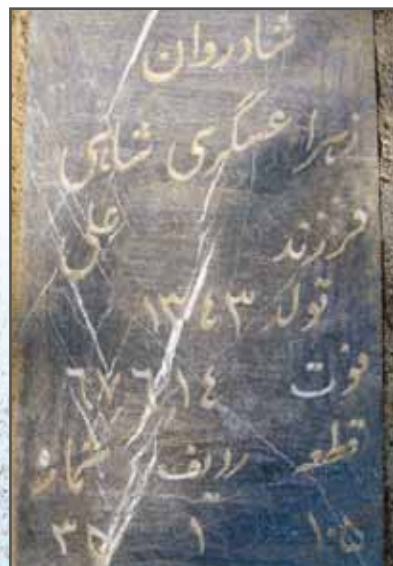 شادروان
زهرا عسگری شاهی
فرزند علی
تولد ۱۳۴۳
فوت ۱۴ ۶ ۶۷
قطعه ردیف شماره
۱۰۵ ۱ ۳۵